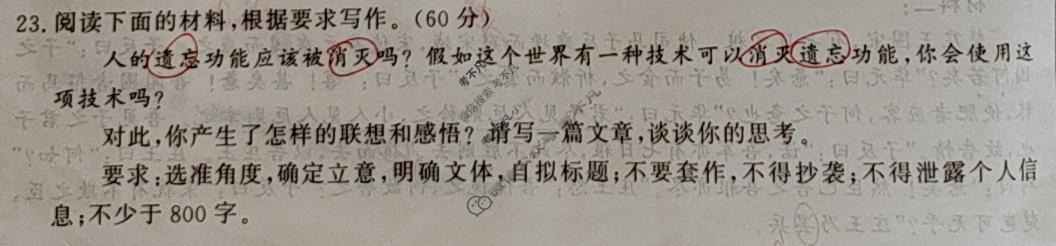 23.阅读下面的材料,根据要求写作。(60分)
人的遗忘功能应该被消灭吗?假如这个世界有一种技术可以消灭遗忘功能,你会使用这
项技术吗?
对此,你产生了怎样的联想和感悟?请写一篇文章,谈谈你的思考。
要求:选准角度,确定立意,明确文体,自拟标题;不要套作,不得抄袭;不得泄露个人信
息;不少于800字。